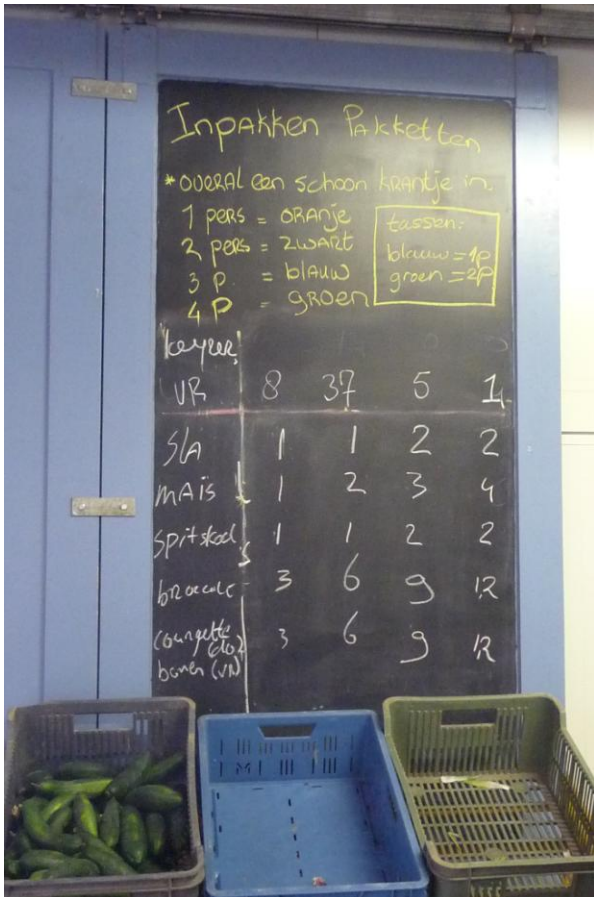 Inpakken Pakketten
* overal een schoon krantje in.
1 pers = oranje
2 pers = zwart
3 p. = blauw
4 p = groen
tassen:
blauw = 1p
groen = 2p
keyzer,
VR 8 37 5 1
Sla 1 1 2 2
mais 1 2 3 4
Spitskool 1 1 2 2
broccoli 3 6 9 12
Courgette 3 6 9 12
(do)
bonen (VR)